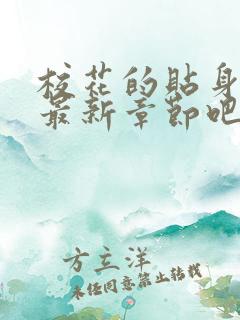 校花的贴身
最新章节吧
方立洋
未经同意禁止转载